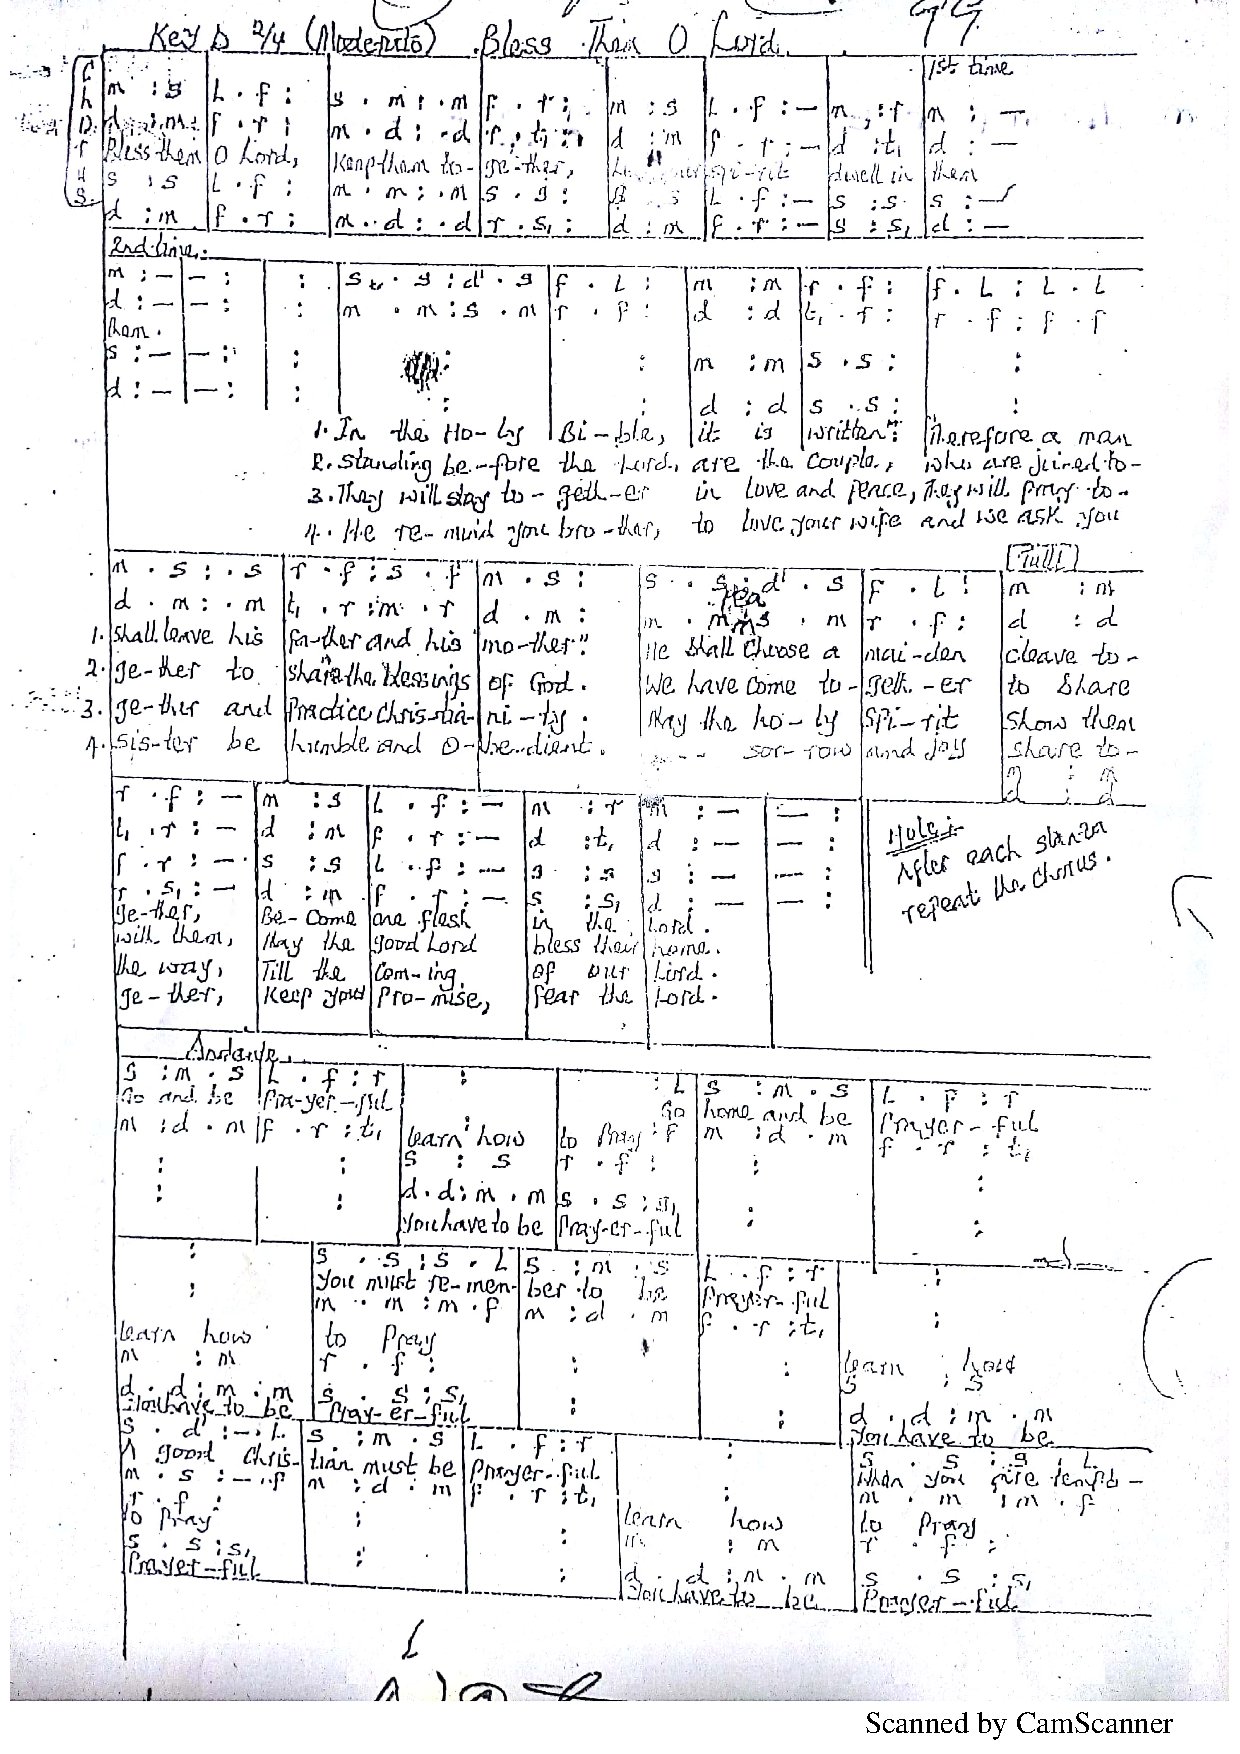 Key D 2/4 (Moderato) Bless Them O Lord
Chorus
1st time
m :s | L . f : | s . m : . m | f . r : | m : s | L . f :— | m , : r | m : —
d : m | f . r : | m . d : . d | r , t, : | d : m | f . r :— | d : t, | d : —
Bless them | O Lord, | Keep them to- | ge-ther, | spi-rit | dwell in | them
s : s | L . f : | m . m : . m | s . s : | s | L . f :— | s : s | s : —
d : m | f . r : | m . d : . d | r . s, : | d : m | f . r :— | s : s, | d : —
2nd time.
m : — | — : | : | s . s : d' . s | f . L : | m : m | r . f : | f . L : L . L
d : — | — : | : | m . m : s . m | r . f : | d : d | t, . r : | r . f : f . f
them.
s : — | — : | : | : | : | m : m | s . s : | :
d : — | — : | : | : | : | d : d | s . s : | :
1. In the Ho-ly | Bi-ble, | it is | written": | "Therefore a man
2. Standing be-fore the Lord, are the Couple, who are joined to-
3. They will stay to- geth-er in love and peace, They will pray to-
4. He re-mind you bro-ther, to love your wife and we ask you
[Tutti]
m . s : . s | r . f : s . f | m . s : | s . s : d' . s | f . L : | m : m
d . m : . m | t, . r : m . r | d . m : | m . m : s . m | r . f : | d : d
1. shall leave his | fa-ther and his | mo-ther." | He shall choose a | mai-den | cleave to-
2. ge-ther to | share the blessings | of God. | We have come to- | geth-er | to share
3. ge-ther and | Practice Chris-tia- | ni-ty. | May the ho-ly | spi-rit | show them
4. sis-ter be | humble and o- | be-dient. | sor-row | and joy | share to-
m : m
d : d
r . f : — | m : s | L . f : — | m : r | m : — | — :
t, . r : — | d : m | f . r : — | d : t, | d : — | — :
f . r : — | s : s | L . f : — | s : s | s : — | — :
r . s, : — | d : m | f . r : — | s : s, | d : — | — :
ge-ther, | Be-come | one flesh | in the | Lord.
with them, | May the | good Lord | bless their | home.
the way, | Till the | Com-ing | of our | Lord.
ge-ther, | Keep your | Pro-mise, | fear the | Lord.
Note:-
After each stanza
repeat the chorus.
Andante.
s : m . s | L . f : r | : | : L | s : m . s | L . f : r
Go and be | Pra-yer-ful | Go | home and be | Prayer-ful
m : d . m | f . r : t, | learn how | to Pray : f | m : d . m | f . r : t,
: | : | s : s | r . f : | : | :
: | : | d . d : m . m | s . s : s, | : | :
You have to be | Pray-er-ful
: | s . s : s . L | s : m . s | L . f : r | :
: | You must re-mem- | ber to be | Prayer-ful | :
m . m : m . f | m : d . m | f . r : t,
learn how | to Pray | learn how
m : m | r . f : | : | : | s : s
d . d : m . m | s . s : s, | : | : | d . d : m . m
You have to be | Pray-er-ful | You have to be
s . d' : — . L | s : m . s | L . f : r | : | s . s : s . L
A good Chris- | tian must be | Prayer-ful | : | When you are tempt-
m . s : — . f | m : d . m | f . r : t, | m . m : m . f
r . f : | : | : | learn how | to Pray
to Pray | : m | r . f :
s . s : s, | : | : | d . d : m . m | s . s : s,
Prayer-ful | You have to be | Prayer-ful
Scanned by CamScanner